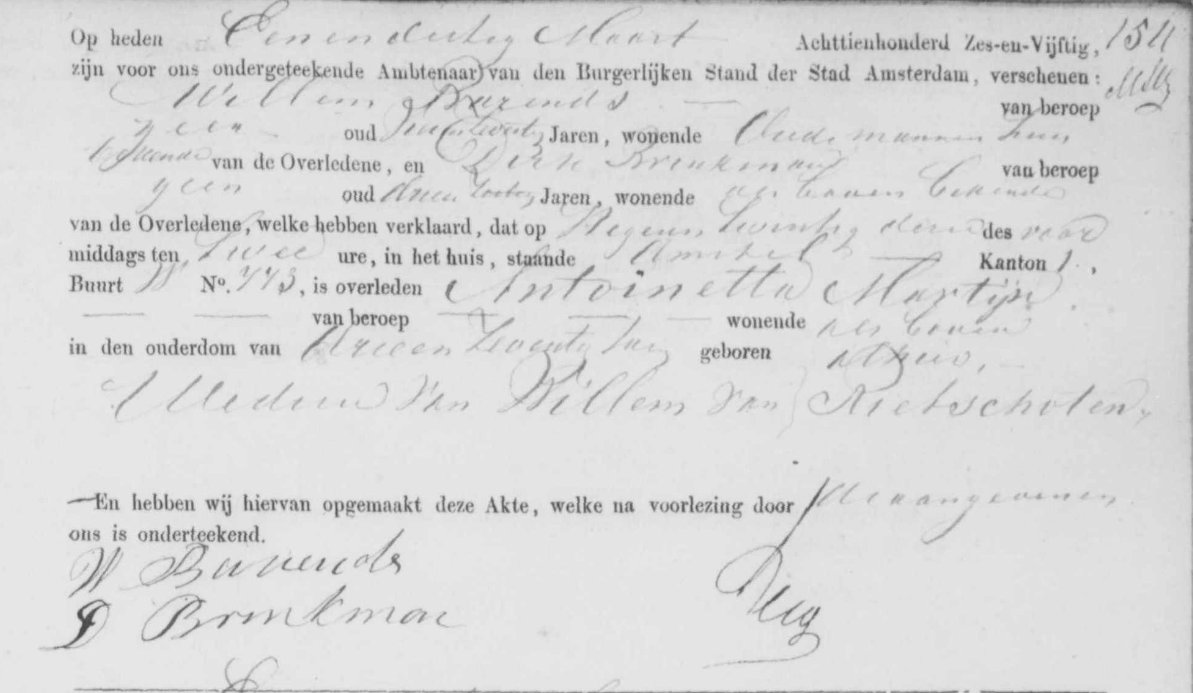 Op heden Een en dertig Maart Achttienhonderd Zes-en-Vijftig,
zijn voor ons ondergeteekende Ambtenaar van den Burgerlijken Stand der Stad Amsterdam, verschenen:
Willem Barends van beroep
geen oud Jaren, wonende Oude mannen huis
bekende van de Overledene, en Dirk Brinkman van beroep
geen oud Jaren, wonende als boven bekende
van de Overledene, welke hebben verklaard, dat op Negen Twintig dezer des voor
middags ten Twee ure, in het huis, staande Amstel Kanton 1.,
Buurt W No. 773, is overleden Antoinetta Martijn
van beroep wonende als boven
in den ouderdom van Drie en Zeventig Jaar geboren alhier,
Weduwe van Willem van Rietschoten
En hebben wij hiervan opgemaakt deze Akte, welke na voorlezing door de aangevenen
ons is onderteekend.
W Barends
D Brinkman